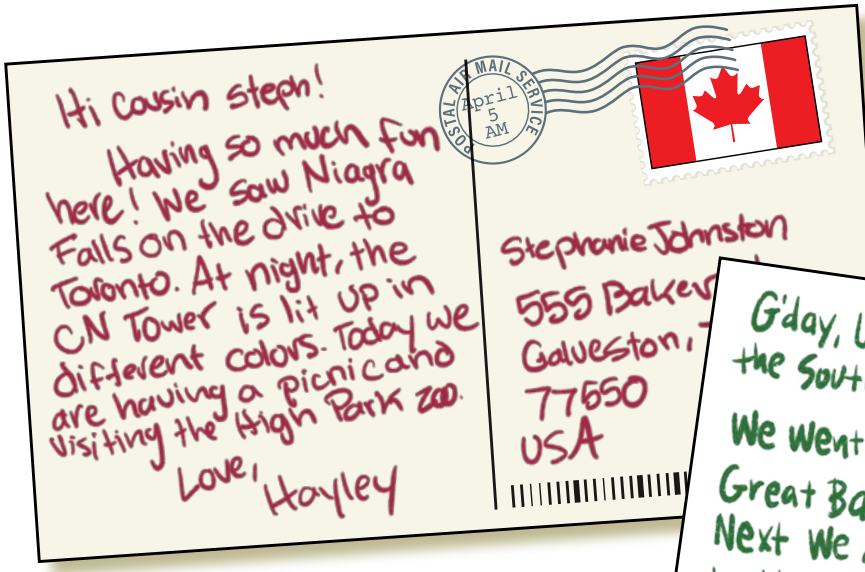 Hi Cousin Steph!
Having so much fun
here! We saw Niagra
Falls on the drive to
Toronto. At night, the
CN Tower is lit up in
different colors. Today we
are having a picnic and
visiting the High Park zoo.
Love,
Hayley
POSTAL AIR MAIL SERVICE
April
5
AM
Stephanie Johnston
555 Baker
Galveston,
77550
USA
G'day,
the
We went
Great
Next We